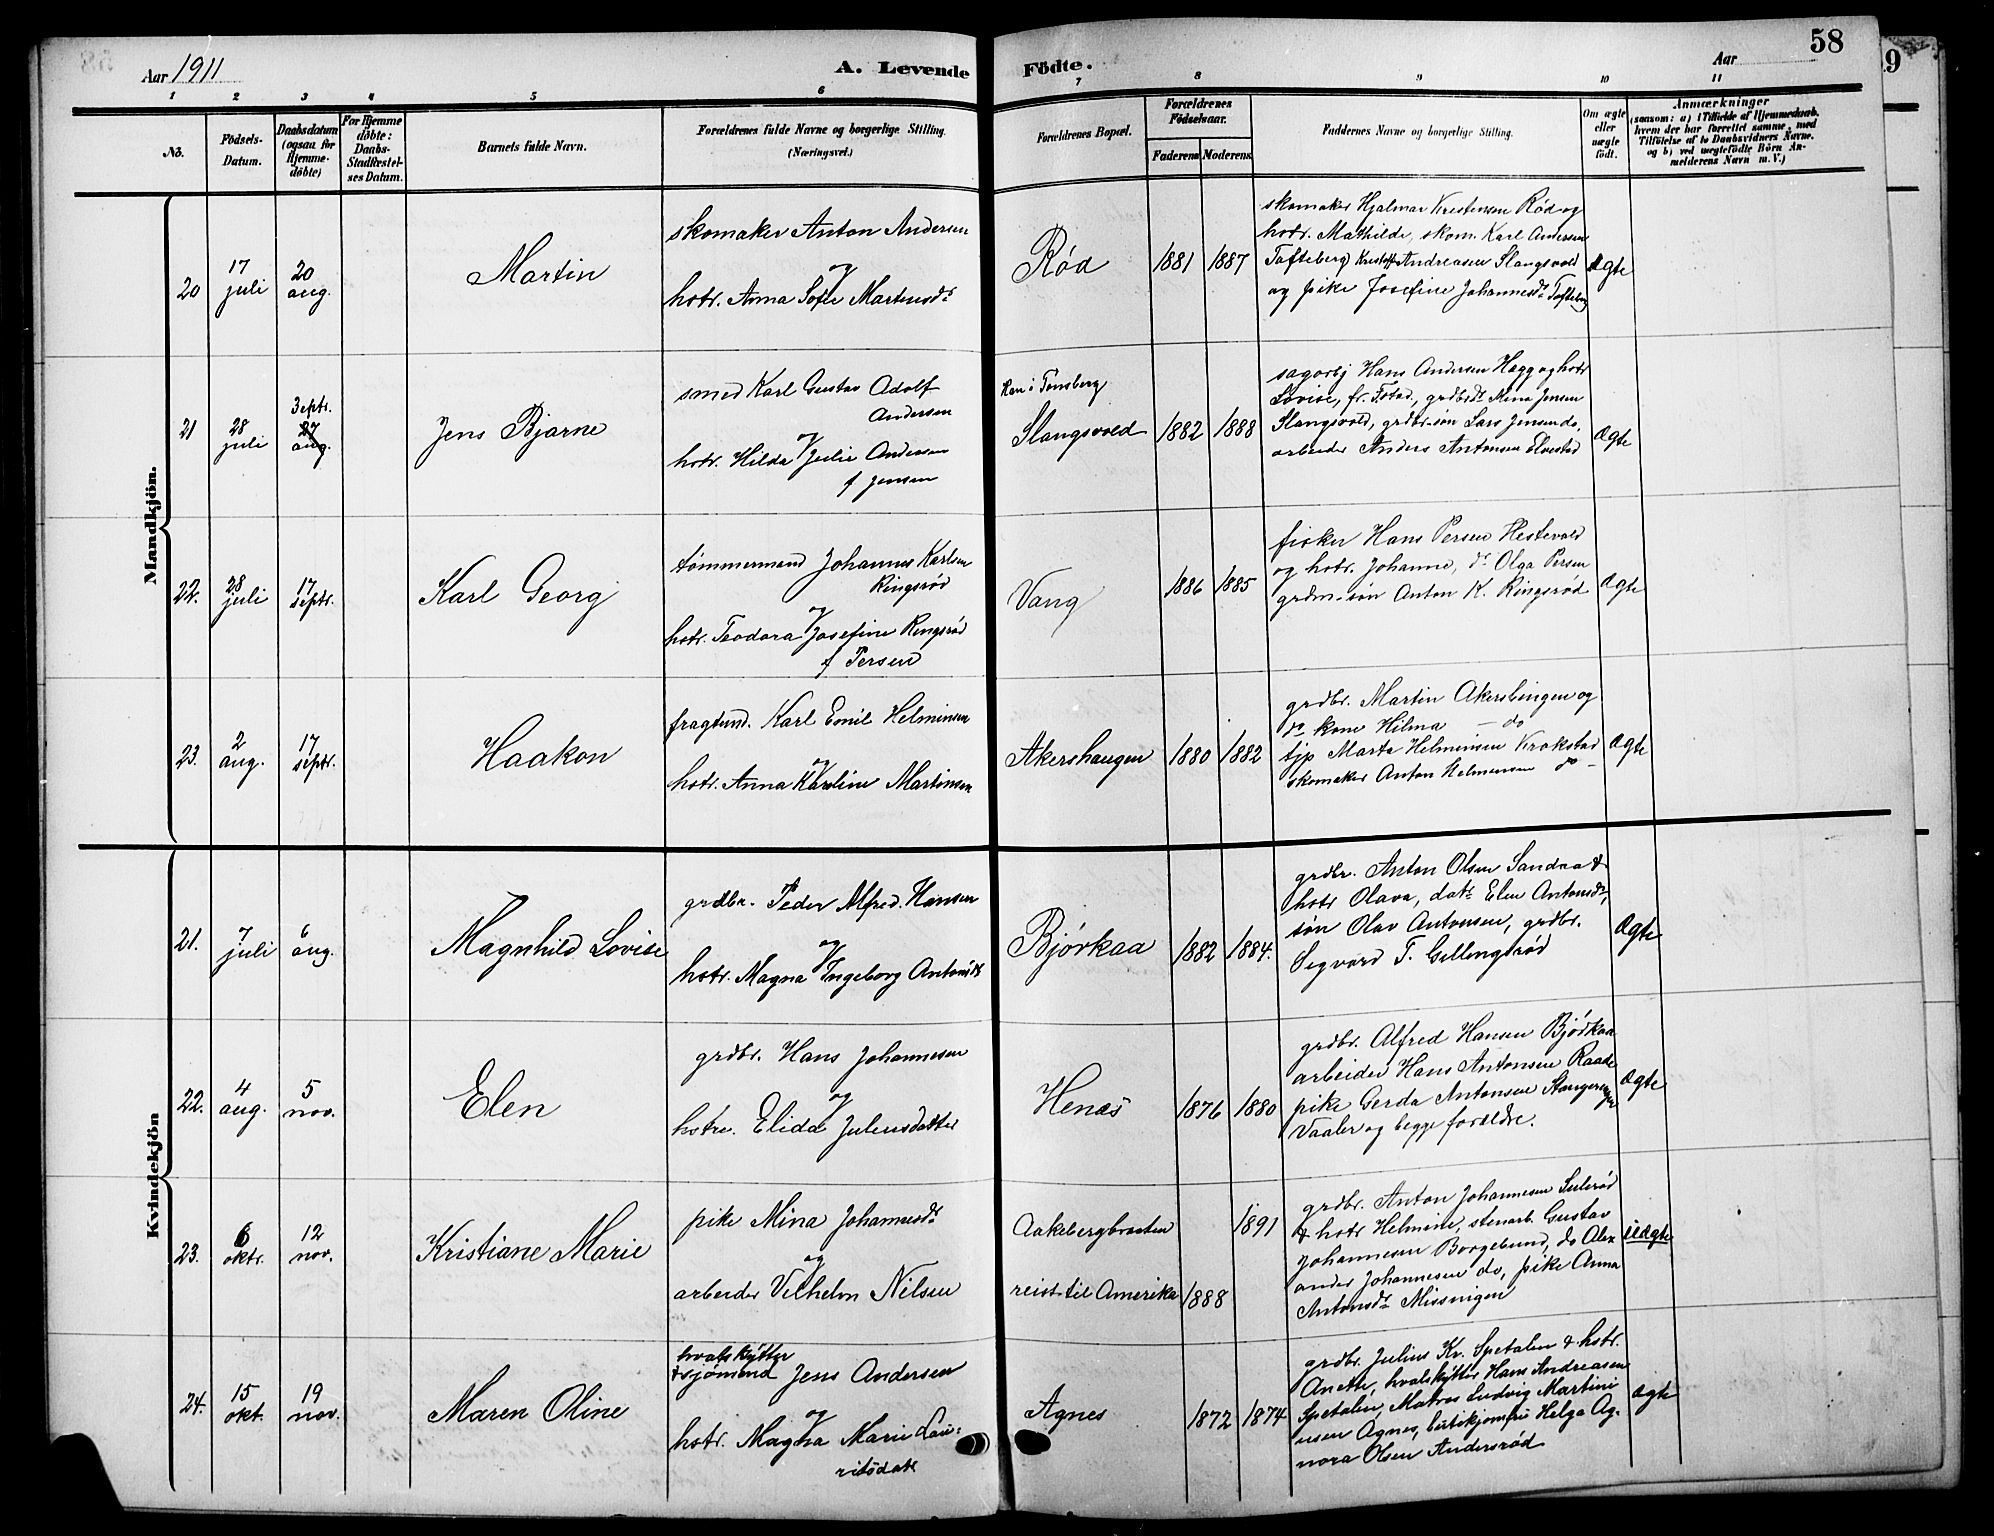 Aar 1911
A. Levende Födte.
Aar
58
1 2 3 4 5 6 7 8 9 10 11
No.
Födsels-Datum.
Daabsdatum (ogsaa for Hjemme-döbte)
For Hjemme döbte: Daabs-Stadfæstel-ses Datum.
Barnets fulde Navn.
Forældrenes fulde Navne og borgerlige Stilling.
(Næringsvei.)
Forældrenes Bopæl.
Forældrenes Födselsaar.
Faderens
Moderens
Faddernes Navne og borgerlige Stilling.
Om ægte eller uægte födt.
Anmærkninger
(saasom: a) i Tilfælde af Hjemmedaab, hvem der har forrettet samme, med Tilföielse af to Daabsvidners Navne, og b) ved uægtefödte Börn An-melderens Navn m. V.)
Mandkjön.
20
17 juli
20 aug.
Martin
skomaker Anton Andersen
og
hstr. Anna Sofie Martinsdr
Rød
1881
1887
skomaker Hjalmar Kristensen Rød og
hstr. Mathilde, skom. Karl Andersen
Tofteberg Kristoff Andreasen Slangsvold
og pike Josefine Johannesdr Tofteberg
ægte
21
28 juli
3 septr.
27 aug.
Jens Bjarne
smed Karl Gustav Adolf
Andersen
og
hstr. Hilda Julie Andersen
f Jensen
Han i Tønsberg
Slangsvold
1882
1888
sagarbj Hans Andersen Hægg og hstr
Lovise, fr. Fstad, grdbrdt Mina Jensen
Slangsvold, grdbr.søn Lars Jensen do,
arbeider Anders Antonsen Elvestad
ægte
22.
28 juli
17 septr.
Karl Georg
tømmermand Johannes Karlsen
Ringsrød
og
hstr. Teodora Josefine Ringsrød
f Persen
Vang
1886
1885
fisker Hans Persen Hestevold
og hstr. Johanne, dr Olga Persen
grdm.søn Anton K. Ringsrød
ægte
23.
2 aug.
17 septr.
Haakon
fragtmd. Karl Emil Helminsen
og
hstr. Anna Karoline Martinsen
Akershaugen
1880
1882
grdbr. Martin Akersbingen og
kone Hilma — do
tjp Marta Helminsen Krokstad
skomaker Anton Helminsen do -
ægte
Kvindekjön
21.
7 juli
6 aug.
Magnhild Lovise
grdbr. Peder Alfred Hansen
og
hstr. Magna Ingeborg Antonsdr
Bjørkaa
1882
1884.
grdbr. Anton Olsen Sandaa &
hstr Olava, datr Elen Antonsdr,
søn Olav Antonsen, grdbr.
Sigvard T. Gillingsrød
ægte
22.
4 aug.
5 nov.
Elen
grdbr. Hans Johannesen
og
hstru. Elida Juliusdatter
Henæs
1876
1880
grdbr. Alfred Hansen Bjørkaa
arbeider Hans Antonsen Raade
pike Gerda Antonsen
Vaaler og begge forældre.
ægte
23.
6 oktr.
12 nov.
Kristiane Marie
pike Mina Johannesdr
og
arbeider Vilhelm Nilsen
Aakebergbraaten
reist til Amerika
1888
1891
grdbr. Anton Johannesen Sulerød
& hstr Helmine, stenarb. Gustav
Johannesen Borgebund, do Alex
ander Johannesen do, pike Anna
Antonsdr Missingen
uægte
24.
15 okt.
19 nov.
Maren Oline
hvalskytter
& sjømand Jens Andersen
og
hstr. Magna Marie Lau-
ritsdatr
Agnes
1872
1874
grdbr. Julius Kr. Spetalen & hstr.
Anette, hvalskytter Hans Andreasen
Spetalen, Matros Ludvig Martini
usen Agnes, butikjomfru Helga Ag-
nora Olsen Andersrød
ægte